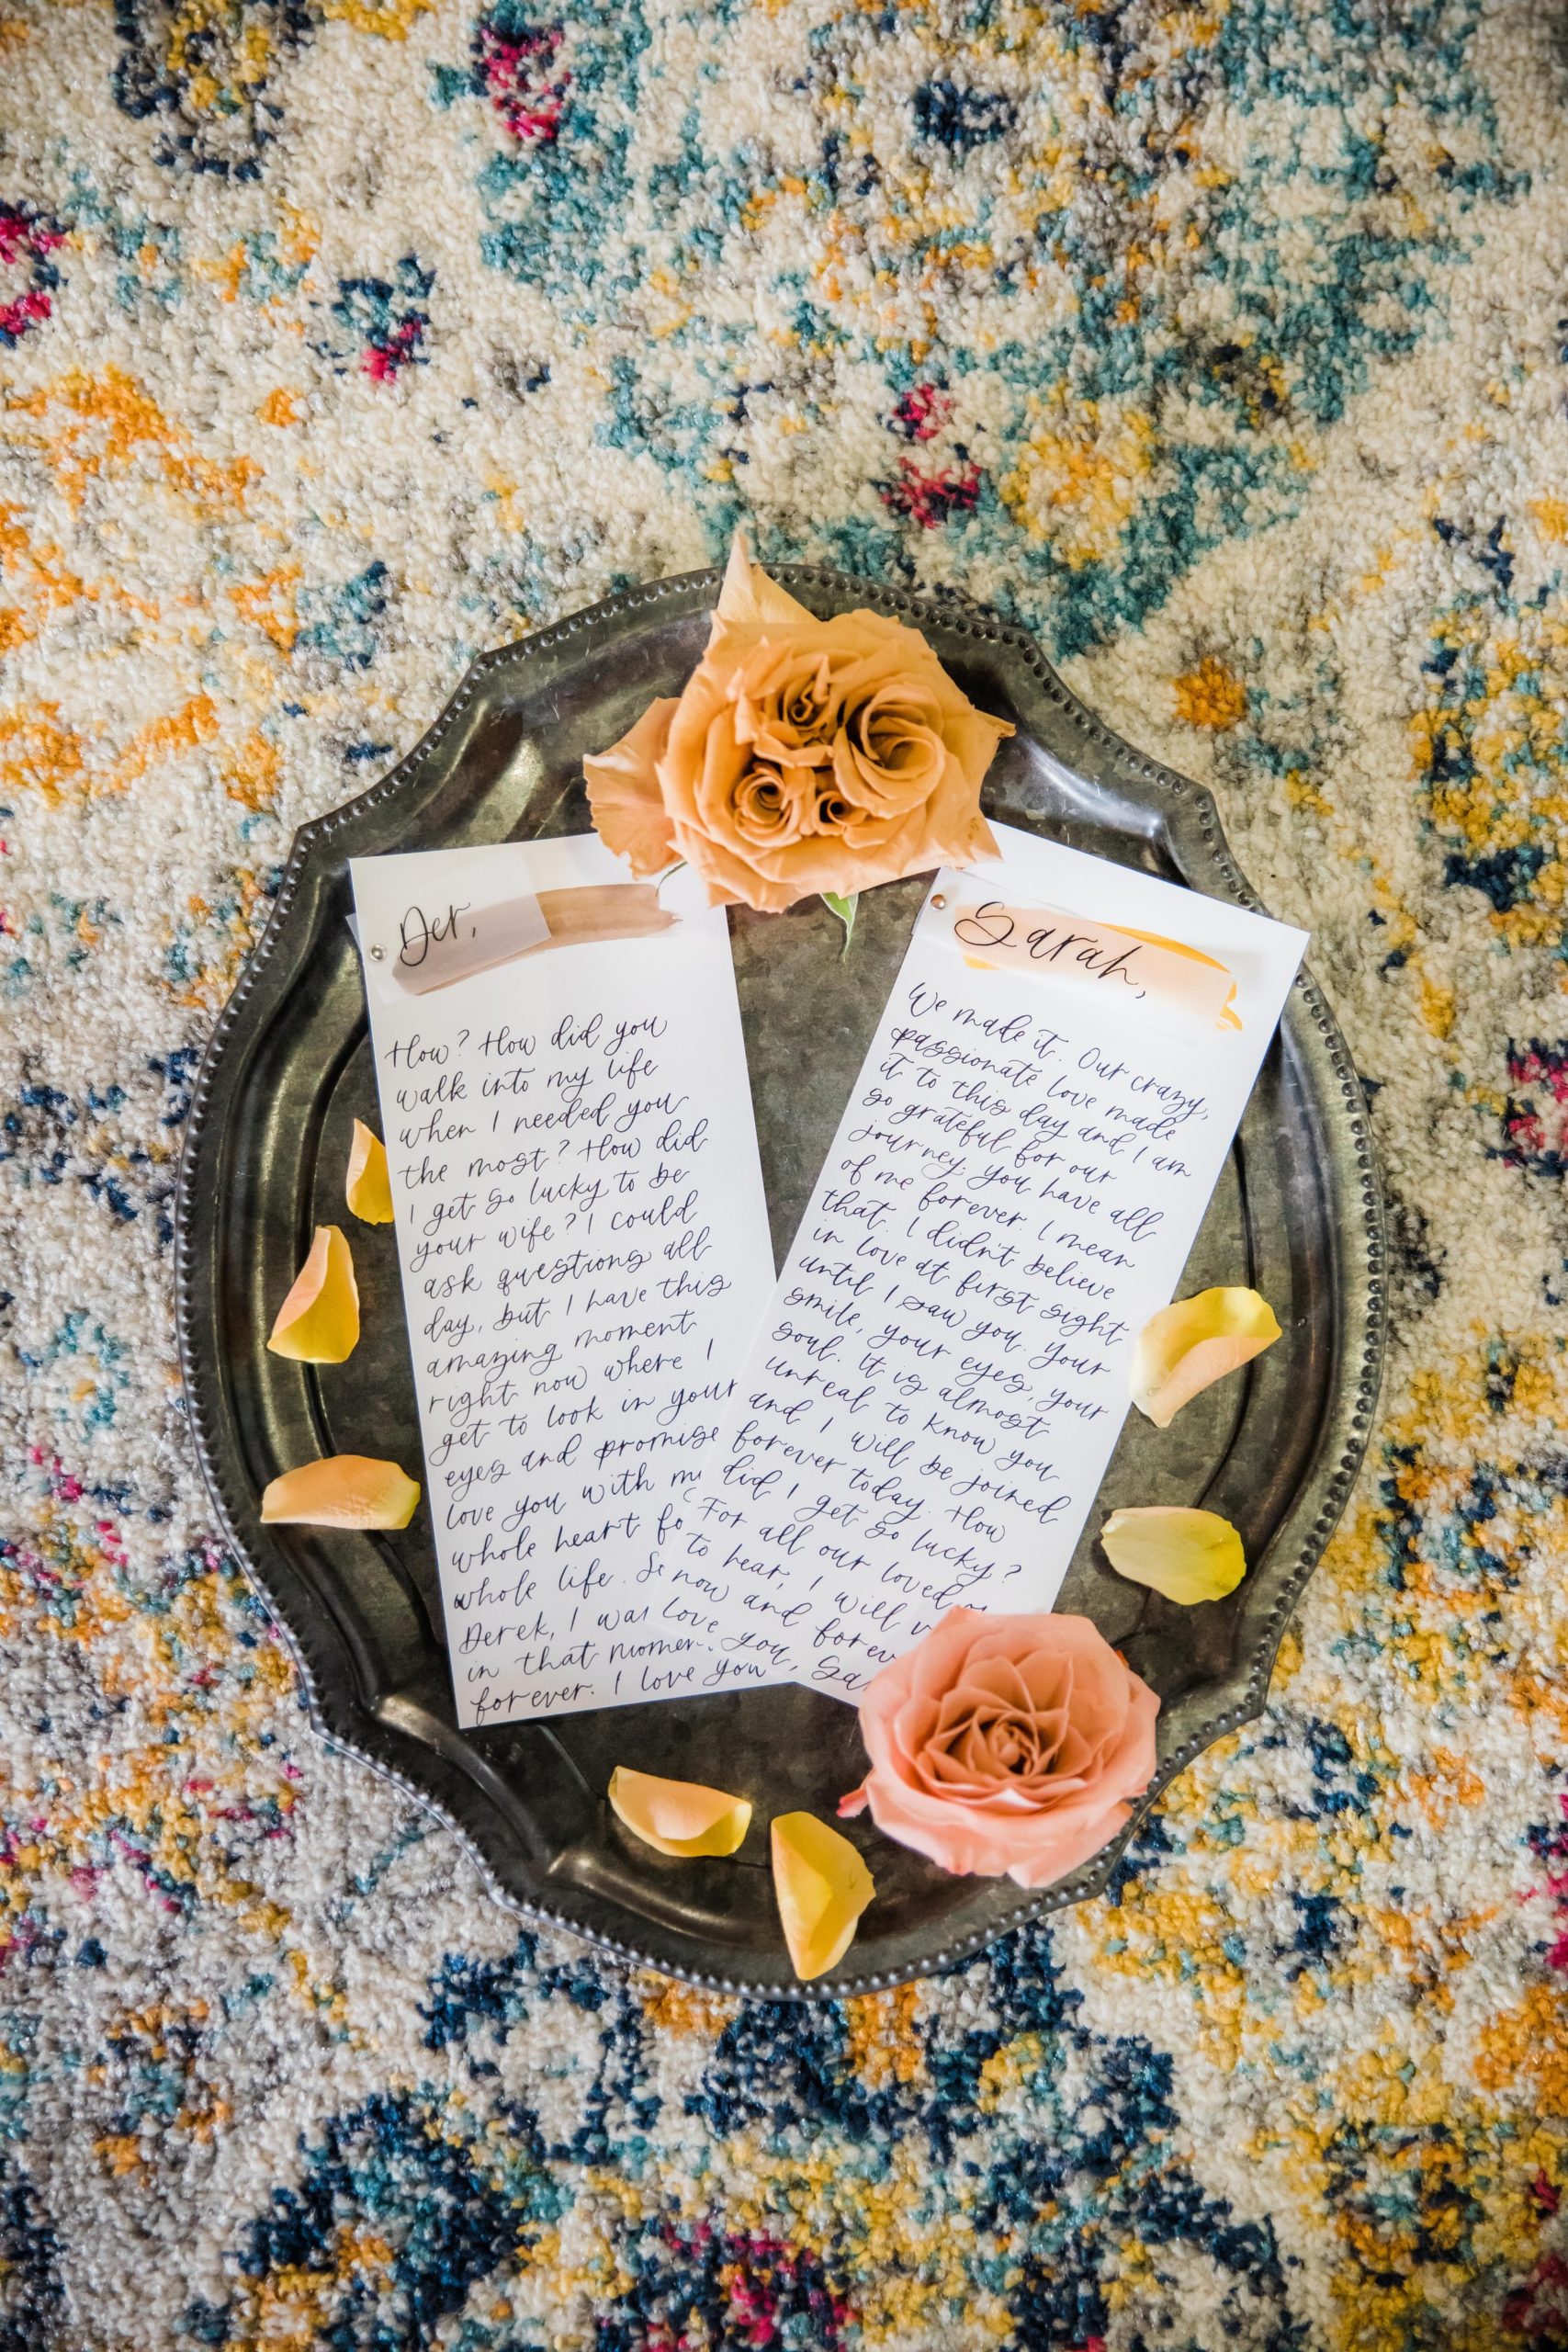 Der,
How? How did you
walk into my life
when I needed you
the most? How did
I get so lucky to be
your wife? I could
ask questions all
day, but I have this
amazing moment
right now where I
get to look in your
eyes and promise
love you with
whole heart
whole life.
Derek, I
in that
forever. I love you
Sarah,
We made it. Our crazy,
passionate love made
it to this day and I am
so grateful for our
journey. You have all
of me forever. I mean
that. I didn't believe
in love at first sight
until I saw you. Your
smile, your eyes, your
soul. It is almost
unreal to know you
and I will be joined
forever today. How
did I get so lucky?
For all our loved
to hear, I will
now and
love you,